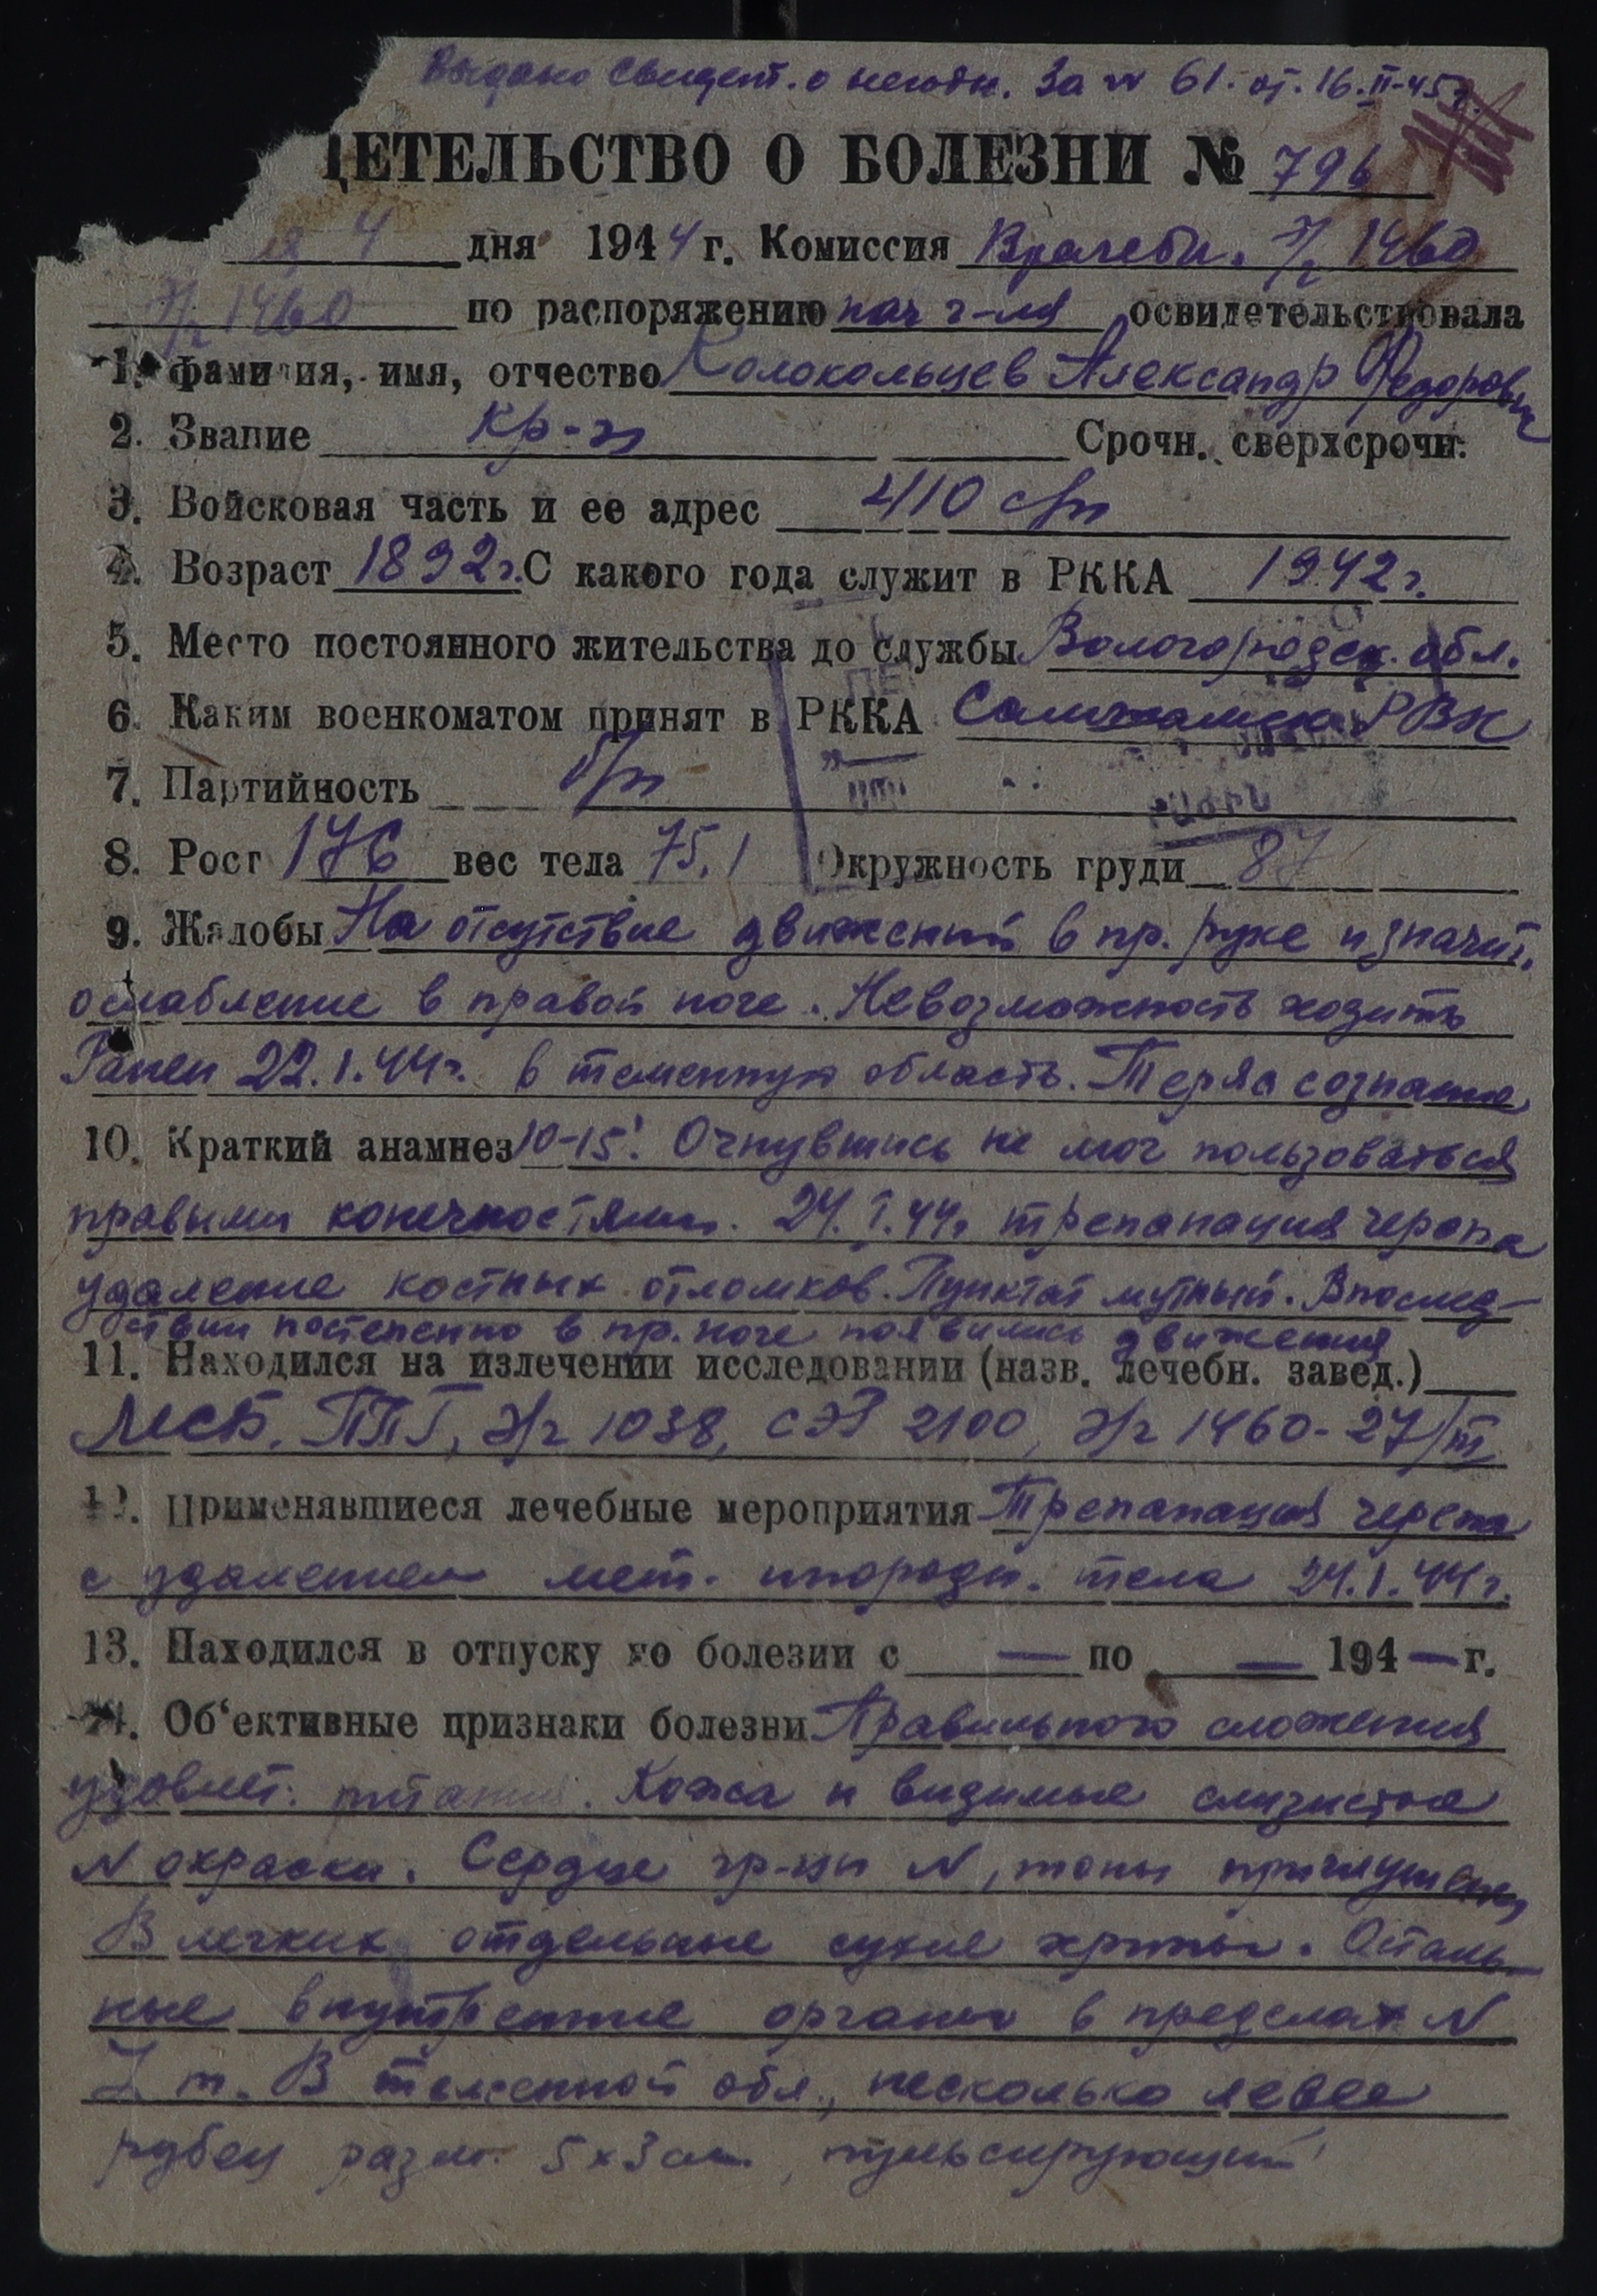 Выдано свидет. о негодн. За № 61. от. 16.II-45г.
ДЕТЕЛЬСТВО О БОЛЕЗНИ № 796
ия 4 дня 1944 г. Комиссия Врачебн. э/г 1460
э/г 1460 по распоряжению нач г-ля освидетельствовала
1. фамилия, имя, отчество Колокольцев Александр Федорович
2. Звание кр-ц Срочн. сверхсрочн.
3. Войсковая часть и ее адрес 410 сп
4. Возраст 1892г. С какого года служит в РККА 1942г.
5. Место постоянного жительства до службы Вологородск. обл.
6. Каким военкоматом принят в РККА РВК
7. Партийность б/п
8. Рост 176 вес тела 75,1 Окружность груди 87
9. Жалобы На отсутствие движений в пр. руке и значит.
ослабление в правой ноге. Невозможность ходить
Ранен 22.1.44г. в теменную область. Терял сознание
10. Краткий анамнез 10-15'. Очнувшись не мог пользоваться
правыми конечностями. 24.I.44г трепанация черепа
удаление костных отломков. Пунктат мутный. Впослед-
ствии постепенно в пр. ноге появились движения
11. Находился на излечении исследовании (назв. лечебн. завед.)
МСБ, ППГ, э/г 1038, СЭГ 2100, э/г 1460-27/III
12. Применявшиеся лечебные мероприятия Трепанация черепа
с удалением мет. инородн. тела 24.1.44г.
13. Находился в отпуску по болезни с — по — 194—г.
14. Об‘ективные признаки болезни Правильного сложения
удовлет. питания. Кожа и видимые слизистые
N окраски. Сердце гр-цы N, тоны приглушены
В легких отдельные сухие хрипы. Осталь-
ные внутренние органы в пределах N
В теменной обл., несколько левее
рубец разм. 5х3 см, пульсирующий